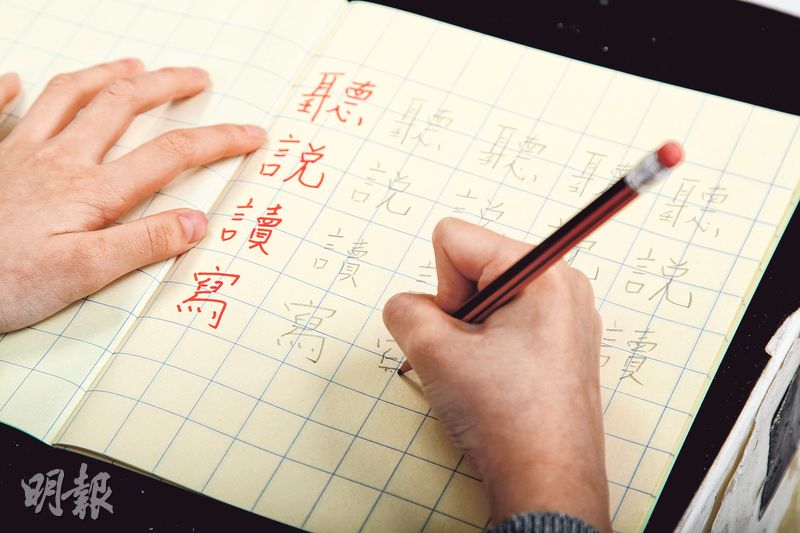 聽 聽 聽 聽 聽
說 說 說 說 說
讀 讀 讀
寫 寫
明報